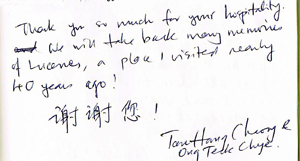 Thank you so much for your hospitality.
We will take back many memories
of Lucerne, a place I visited nearly
40 years ago!
谢谢您!
Tan Hang Cheong &
Ong Teck Chye